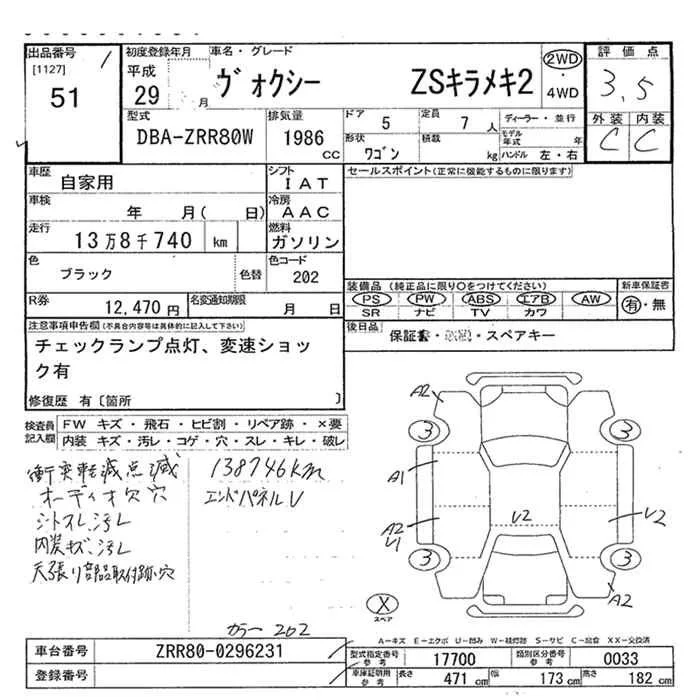 出品番号
[1127]
51
初度登録年月
平成
29 月
車名・グレード
ヴォクシー ZSキラメキ2
2WD
・
4WD
評価点
3.5
外装 内装
C C
型式
DBA-ZRR80W
排気量
1986
CC
ドア 5
定員 7 人
形状 ワゴン
積載 kg
ディーラー・並行
モデル年式 年
ハンドル 左・右
車歴
自家用
シフト
IAT
車検
年 月( 日)
冷房
AAC
走行
13万8千740 km
燃料
ガソリン
色
ブラック
色替
色コード
202
R券
12,470 円
名変通知期限
月 日
セールスポイント(正常に機能するものに限ります)
装備品(純正品に限り○をつけてください)
PS PW ABS エアB AW
SR ナビ TV カワ
新車保証書
有・無
後日品
保証書・ ・スペアキー
注意事項申告欄(不具合内容等は具体的に記入して下さい)
チェックランプ点灯、変速ショッ
ク有
修復歴 有〔箇所 〕
検査員
記入欄
FW キズ・飛石・ヒビ割・リペア跡・×要
内装 キズ・汚レ・コゲ・穴・スレ・キレ・破レ
衝突軽減点滅
オーディオ欠 穴
シートスレ、汚レ
内装キズ、汚レ
天張り部品取付跡、穴
138746km
エンドパネルU
カラー202
A2
3 3
A1
A2
U1
U2
U2
3 3
A2
X
スペア
A-キズ E-エクボ U-凹み W-補修跡 S-サビ C-腐食 XX-交換済
車台番号
ZRR80-0296231
登録番号
型式指定番号
参考
17700
類別区分番号
参考
0033
車庫証明用
参考
長さ 471 cm
幅 173 cm
高さ 182 cm